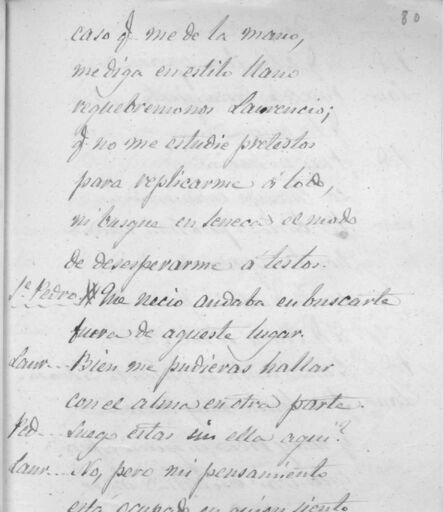 80
caso q̃ me de la mano,
me diga en estilo llano
requebremonos Laurencio;
q̃ no me estudie pretestos
para replicarme á todo,
ni busque en Seneca el modo
de desesperarme á testos.
Sr. Pedro Que necio andaba en buscarte
fuera de aqueste lugar.
Laur... Bien me pudieras hallar
con el alma en otra parte.
Ped... Luego estas sin ella aqui?
Laur... No, pero mi pensamiento
está ocupado en quien siento